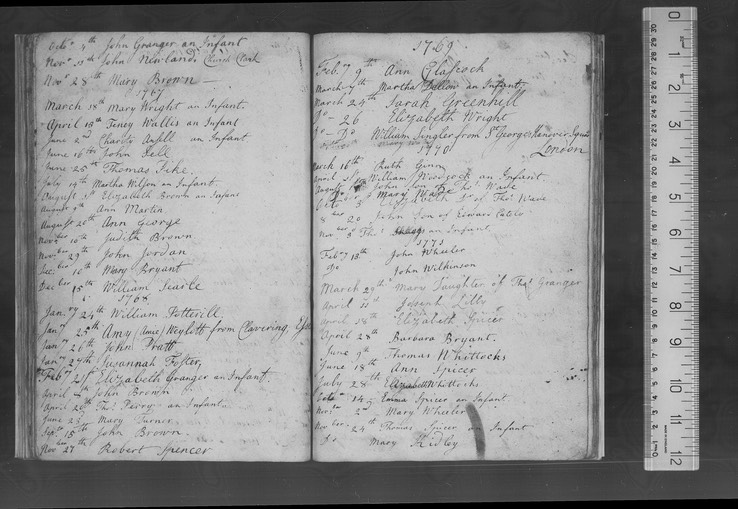 Octo. 4th John Granger an Infant
Novr 15th John Newland, Church Clark
Novr 28th Mary Brown
1767
March 18th Mary Wright an Infant
April 13th Feney Wallis an Infant
June 2nd Charity Ansell an Infant
June 16th John Fell
June 25th Thomas Fike
July 19th Martha Wilson an Infant
August Elizabeth Brown an Infant
August Ann Martin
August 20th Ann George
Novber 10th Judith Brown
Novber 29th John Jordan
Decber 10th Mary Bryant
Decber 15th William Searle
1768
Jany 24th William Potterill
Jany 25th Amy (Amie) Weylott from Clavering
Jany 26th John Pratt
Jany 27th Susannah Foster
Feby 21st Elizabeth Granger an Infant
April John Brown
April 20th Thos Perry an Infant
June 23 Mary Turner
Sepr 15th John Brown
Novber 27 Robert Spencer
1769
Feby 9th Ann Glascock
March 7th Martha an Infant
March 24th Sarah Greenhill
Do 26 Elizabeth Wright
Do Do William Singler from St Georges Hanover Square
London
1770
March 16th Ruth Ginn
April William Woodcock an Infant
August John Son Thos Wade
Octo. Elizabeth Dr of Thos Wade
20 John Son of Edward
Novber Thos an Infant
1771
Feby 13th John Wheeler
Do John Wilkinson
March 29th Mary Daughter of Thos Granger
April 11th Joseph Lilly
April 18th Elizabeth Spicer
April 28th Barbara Bryant
June 9th Thomas Whittocks
June 18th Ann Spicer
July 28th Elizabeth Whittocks
Octo. 14 Emma Spicer an Infant
Novbr 2d Mary Wheeler
Novber 24th Thomas Spicer an Infant
Do Mary Kidley
0 1 2 3 4 5 6 7 8 9 10 11 12